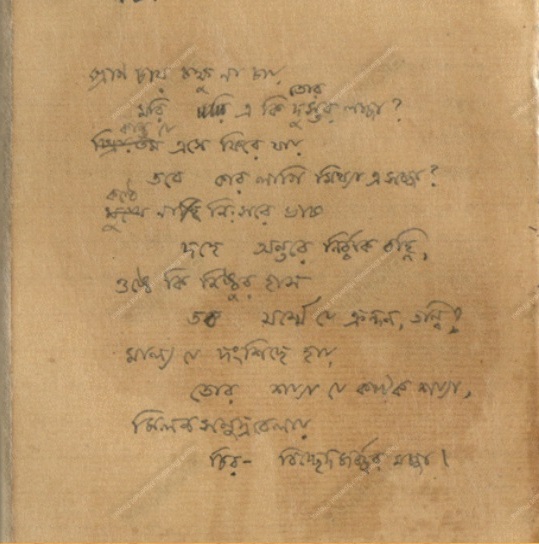 প্রাণ চায় চক্ষু না চায়,
মরি এ কি তোর দুস্তর লজ্জা?
কান্ত যে এসে ফিরে যায়
তবে কার লাগি মিথ্যা এ সজ্জা?
কণ্ঠে নাহি নিঃসরে ভাষ
দহে অন্তরে নির্ব্বাক বহ্নি,
ওষ্ঠে কি নিষ্ঠুর হাস
তব মর্ম্মে যে ক্রন্দন, তন্বি?
মাল্য যে দংশিছে হায়
তোর শয্যা যে কণ্টক শয্যা,
মিলন সমুদ্রবেলায়
চির- বিচ্ছেদ জর্জ্জর মজ্জা।